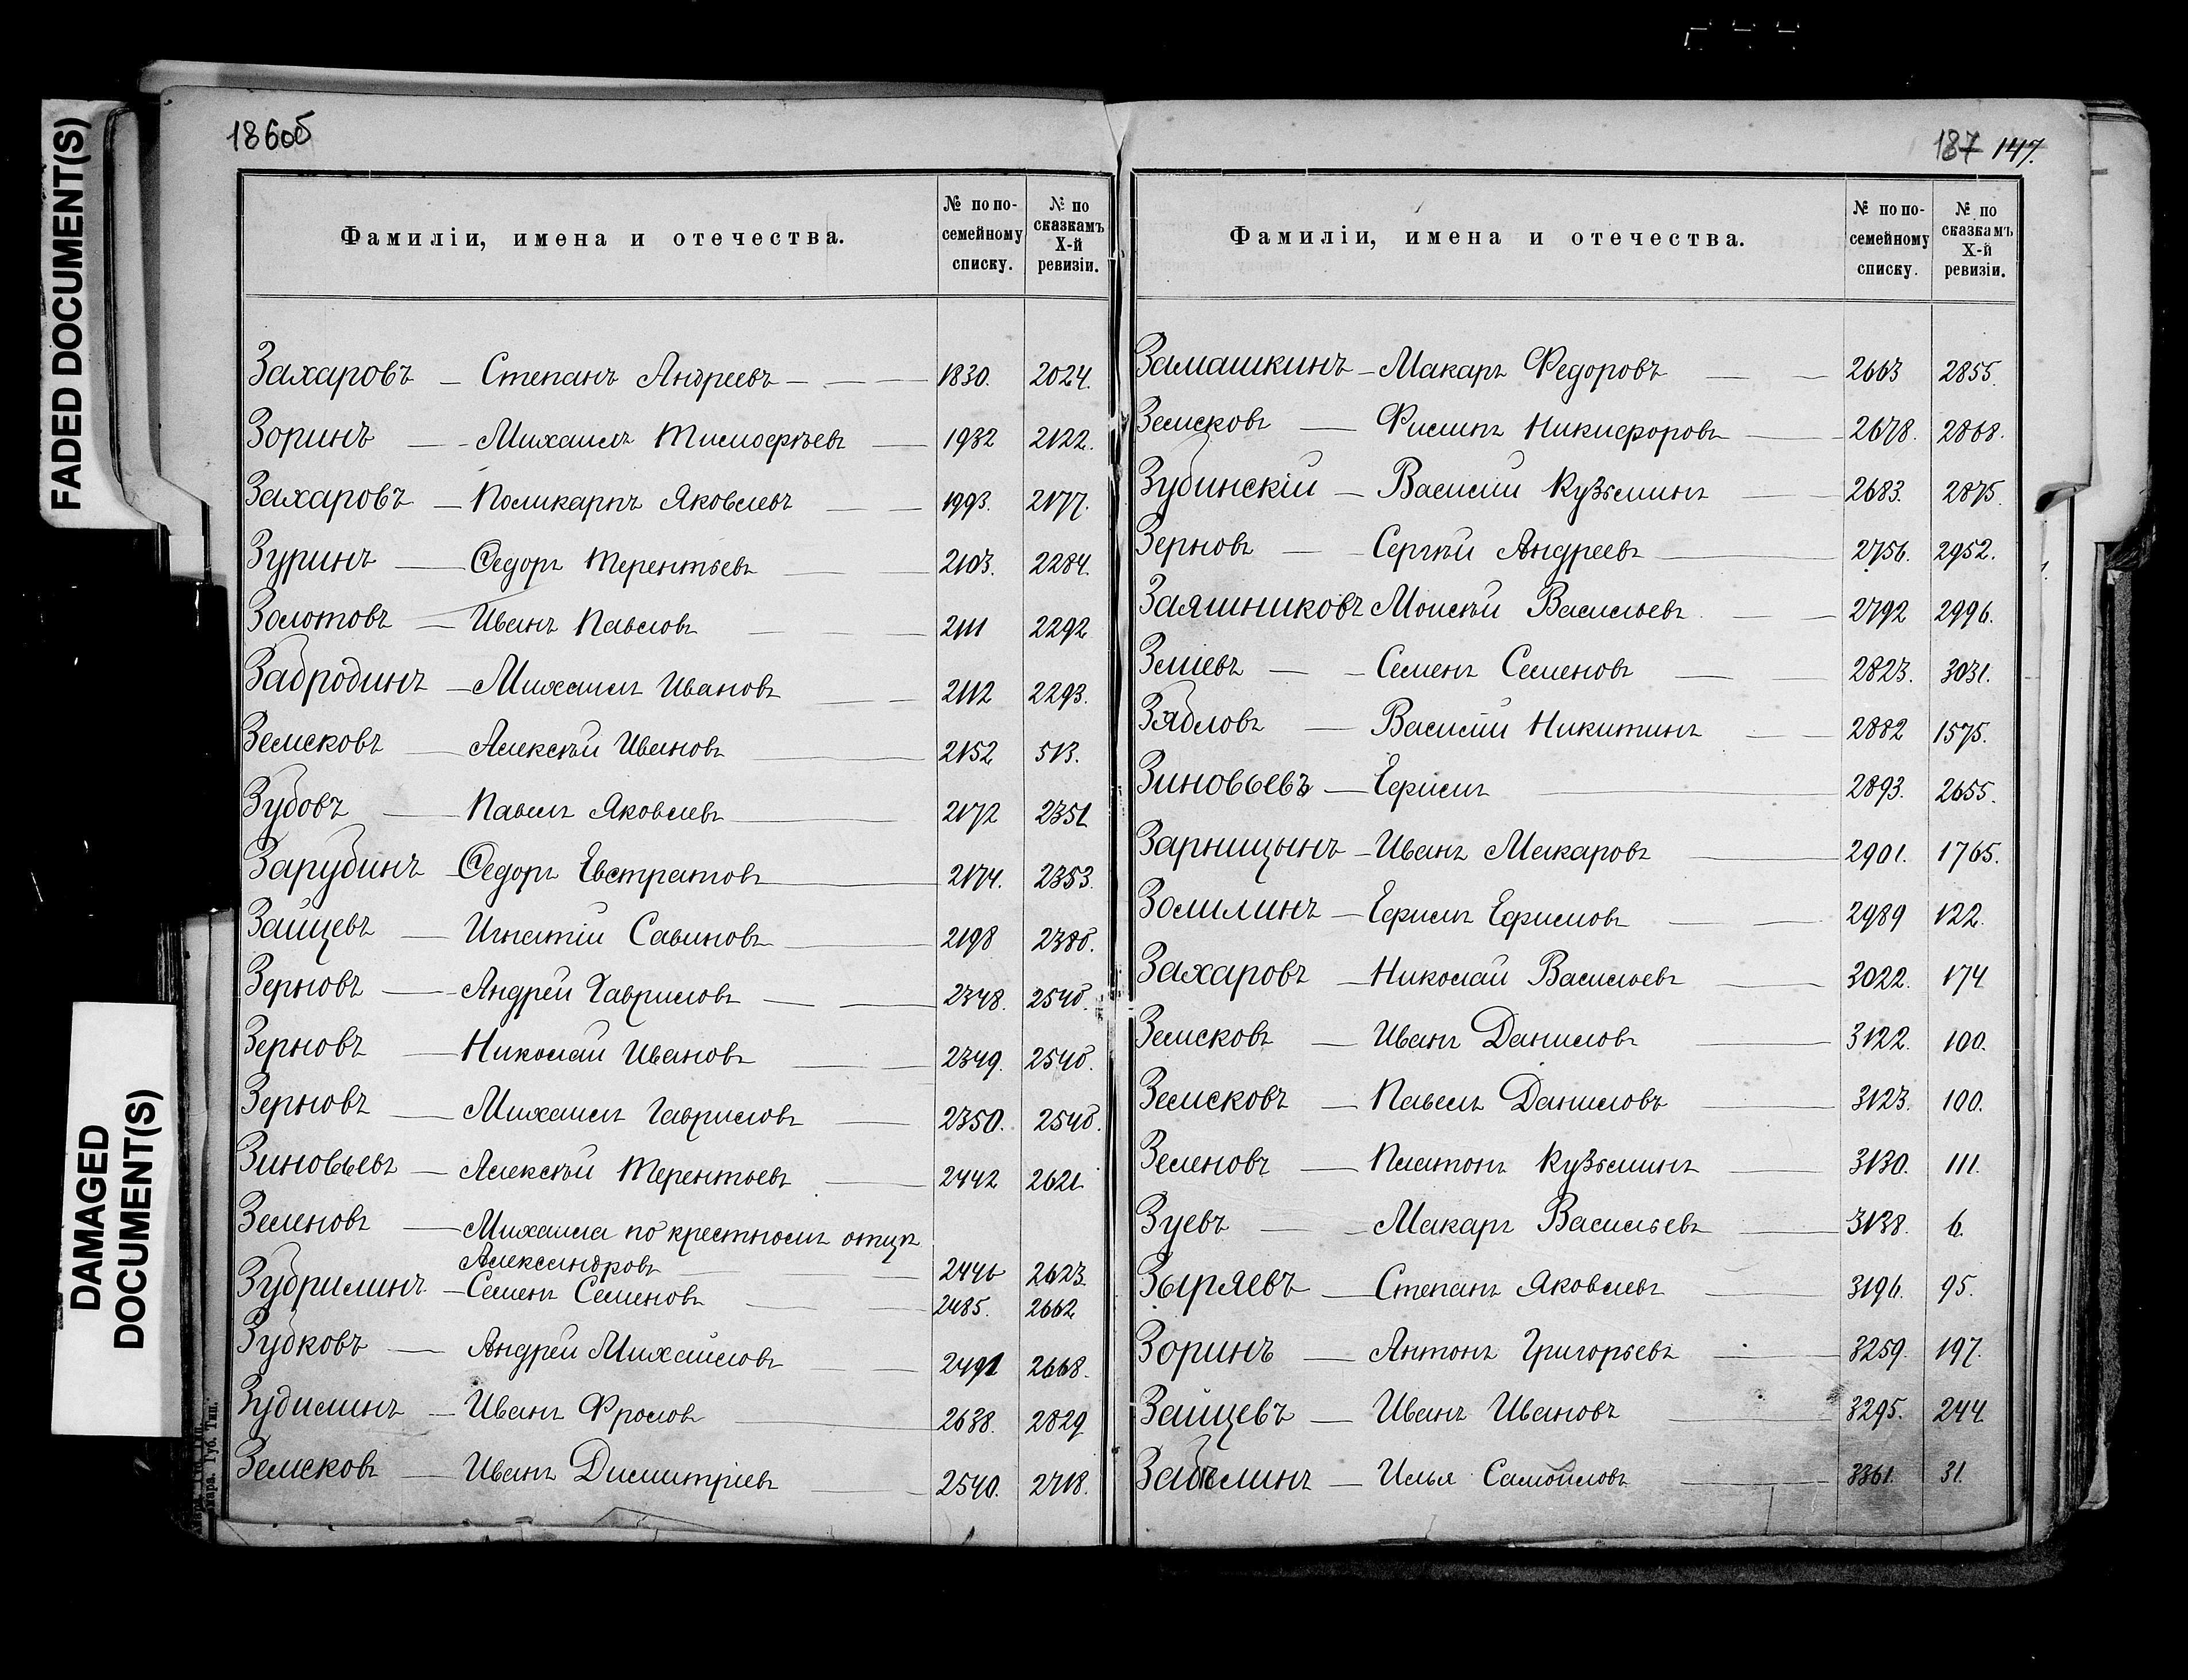 FADED DOCUMENT(S)
DAMAGED
DOCUMENT(S)
186об
Фамиліи, имена и отечества. № по по-семейному списку. № по сказкамъ X-й ревизіи.
Захаровъ — Степанъ Андреевъ — 1830. 2024.
Зоринъ — Михаилъ Тимофѣевъ — 1932 2122.
Захаровъ — Поликарпъ Яковлевъ — 1993. 2177.
Зуринъ — Ѳедоръ Терентьевъ — 2103. 2284.
Золотовъ — Иванъ Павловъ — 2111 2292
Забродинъ — Михаилъ Ивановъ — 2112 2293.
Земсковъ — Алексѣй Ивановъ — 2152 513.
Зубовъ — Павелъ Яковлевъ — 2172 2351
Зарубинъ Ѳедоръ Евстратовъ — 2174. 2353.
Зайцевъ — Игнатій Савиновъ — 2198
Зерновъ — Андрей Гавриловъ — 2348.
Зерновъ — Николай Ивановъ — 2349.
Зерновъ — Михаилъ Гавриловъ — 2350.
Зиновьевъ — Алексѣй Терентьевъ — 2442 2621
Зеленовъ — Михаила по крестномъ отцѣ
Александровъ — 2446 2623.
Зубрилинъ — Семенъ Семеновъ — 2485. 2662
Зубковъ — Андрей Михайловъ — 2491 2668.
Зудилинъ — Иванъ Фроловъ — 2638. 2829
Земсковъ — Иванъ Димитріевъ — 2540. 2718.
187 147.
Фамиліи, имена и отечества. № по по-семейному списку. № по сказкамъ X-й ревизіи.
Замашкинъ — Макаръ Федоровъ — 2663 2855.
Земсковъ — Филипъ Никифоровъ — 2678. 2868.
Зубинскій — Василій Кузьминъ — 2683. 2875.
Зерновъ — Сергѣй Андреевъ — 2756. 2952.
Заяшниковъ Моисѣй Васильевъ — 2792 2996.
Зміевъ — Семенъ Семеновъ — 2823. 3031.
Зябловъ — Василій Никитинъ — 2882 1575.
Зиновьевъ — Ефимъ — 2893. 2655.
Зарницынъ — Иванъ Макаровъ — 2901. 1765.
Ефимъ Ефимовъ — 2989 122.
Захаровъ — Николай Васильевъ — 3022. 174
Земсковъ — Иванъ Даниловъ — 3122. 100.
Земсковъ — Павелъ Даниловъ — 3123. 100.
Зеленовъ — Платонъ Кузьминъ — 3130. 111.
Зуевъ — Макаръ Васильевъ — 3138. 6.
Зыряевъ — Степанъ Яковлевъ — 3196. 95.
Зоринъ — Антонъ Григорьевъ — 3259. 197.
Зайцевъ — Иванъ Ивановъ — 3295. 244.
Забѣлинъ — Илья Самойловъ — 3361. 31.